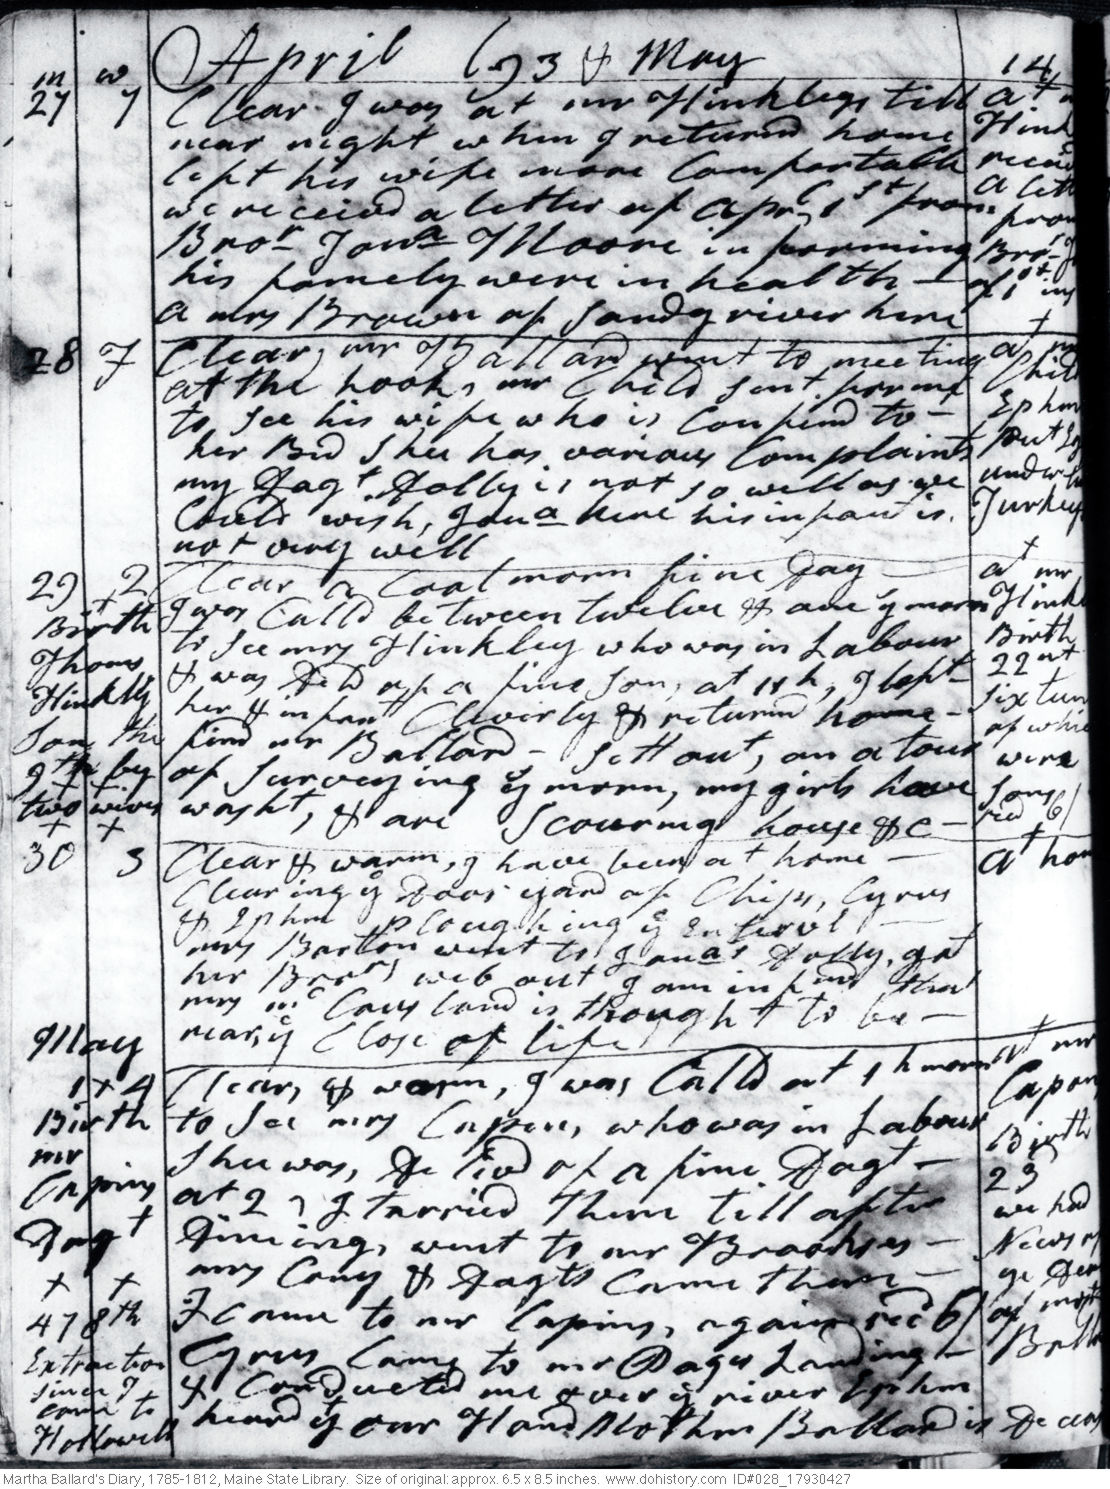 April 1793 & May
14
m w
27 7
Clear I was at mr Hinkleys till
near night when I returnd home
left his wife more Comfortable
we received a letter of Apr 1st from
Bror Jona Moore informing
his famely were in health -
a mrs Brown of Sandy river here
at
Hink
receivd
a lett
from
Bror J
of 1st ins
28 F
Clear, mr Ballard went to meeting
at the hook, mr Child sent for me
to see his wife who is Confind to -
her Bed Shee has various Complaints
my Dagt Dolly is not so well as we
Could wish, Jona here his infant is
not very well
at mr
Child
Ephm
put
under
Turkey
29 2
Clear a Cool morn fine Day
I was Calld between twelve & one ye morn
to see mrs Hinkley who was in Labour
& was Delivd of a fine son, at 11 h, I left
her & infant Cleverly & returnd home -
find mr Ballard - Sett out, on a tour
of Surveying ye morn, my girls have
washt, & are Scouring house &c -
Birth
Thoms
Hinkly
Son, the
9th by
two wives
+ +
at mr
Hinkl
Birth
22nt
six tun
of whic
were
sons
recd 6/
30 3
Clear & warm, I have been at home -
Clearing ye Door yard of Chips, Cyrus
& Ephm ploughing ye
mrs Barton went to Jonas Dolly, got
her web out I am informd that
mrs mc Causland is thought to be -
near ye Close of life
at hom
May
1 + 4
Clear, & warm, I was Calld at 1 h morn
to See mrs Capin, who was in Labour
Shee was, De livd of a fine Dagt -
at 2, I tarried there till after
Dineing, went to mr Brookses -
mrs Cony & Dagts Came there -
I came to mr Capins, again recd 6/
Cyrus Came to mr Pages Landing -
& Conducted me over ye river Ephm
heard yt our Hond Mothr Ballard is Deceas
Birth
mr
Capins
Dagt
+ +
478th
Extraction
since I
came to
Hollowell
at mr
Capons
Birth
23
we had
News of
ye Dea
of moth
Balla
Martha Ballard's Diary, 1785-1812, Maine State Library. Size of original: approx. 6.5 x 8.5 inches. www.dohistory.com ID#028_17930427